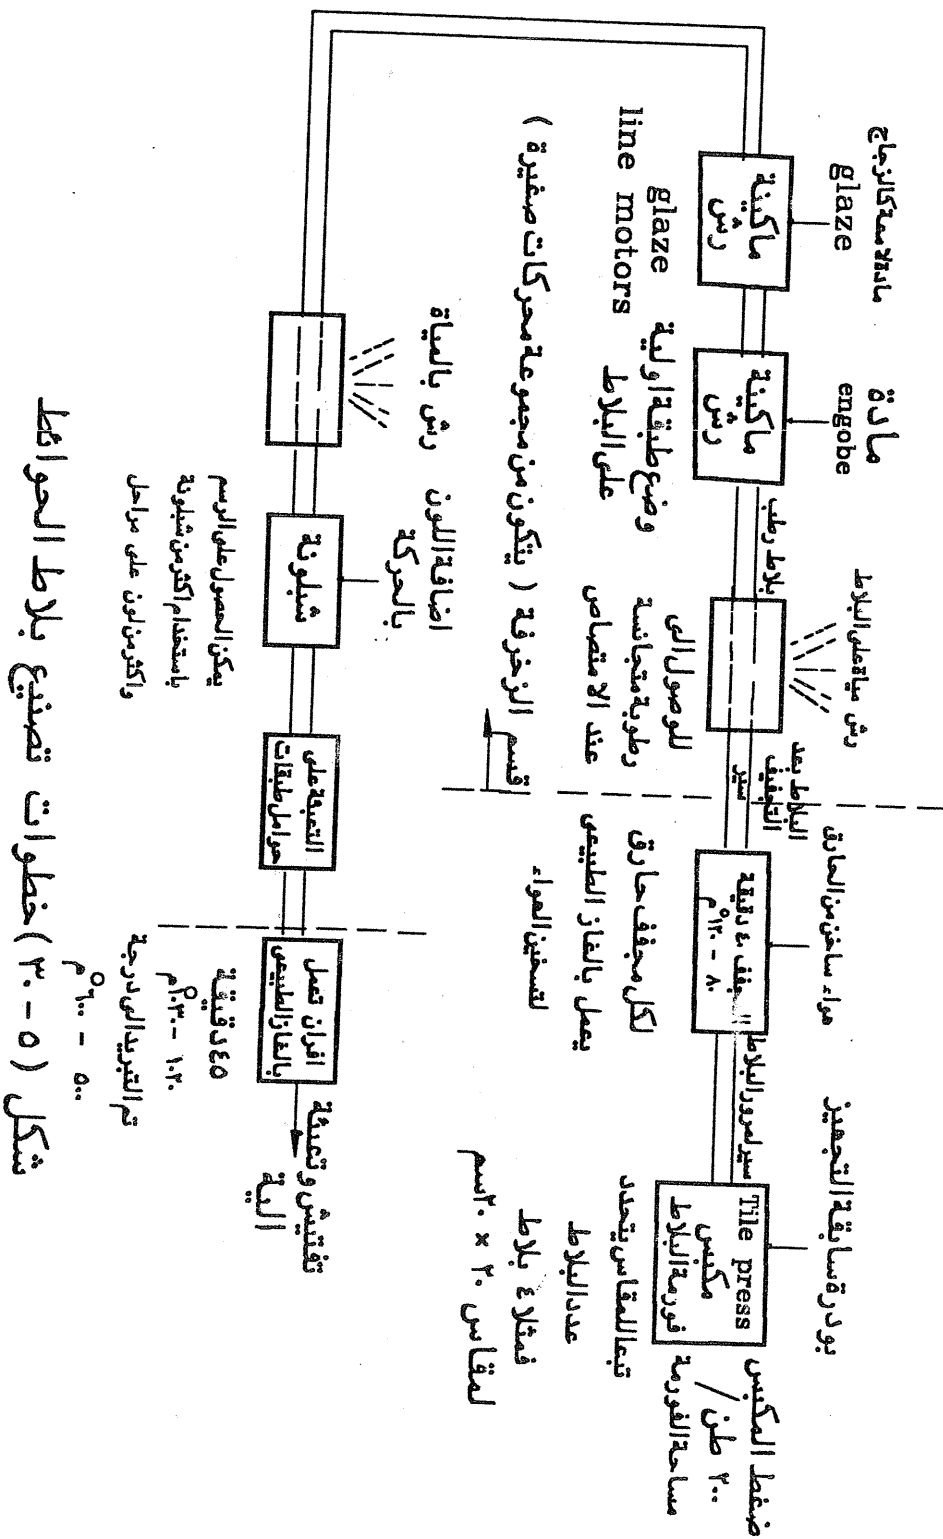 بودرة سابقة التجهيز
Tile press
مكبس
فورمة البلاط
ضغط المكبس
٢٠٠ طن /
مساحة الفورمة
تبعا للمقاس يتحدد
عدد البلاط
فمثلا ٤ بلاط
لمقاس ٢٠ × ٢٠ سم
سير لمرور البلاط
هواء ساخن من الحارق
المجفف ٤٠ دقيقة
٨٠ - ١٢٠ °م
لكل مجفف حارق
يعمل بالغاز الطبيعى
لتسخين الهواء
البلاط بعد
التجفيف
سير
رش مياة على البلاط
للوصول الى
رطوبة متجانسة
عند الامتصاص
بلاط رطب
مادة
engobe
ماكينة
رش
وضع طبقة اولية
على البلاط
مادة لامعة كالزجاج
glaze
ماكينة
رش
glaze
line motors
قسم الزخرفة ( يتكون من مجموعة محركات صغيرة )
رش بالمياة
اضافة اللون
بالحركة
شبلونة
يمكن الحصول على الرسم
باستخدام اكثر من شبلونة
واكثر من لون على مراحل
التعبئة على
حوامل طبقات
افران تعمل
بالغاز الطبيعى
٤٥ دقيقة
١٠٢٠ - ١٠٣٠ °م
تم التبريد الى درجة
٥٠٠ - ٦٠٠ °م
تفتيش وتعبئة
الية
شكل ( ٥ - ٣٠ ) خطوات تصنيع بلاط الحوائط